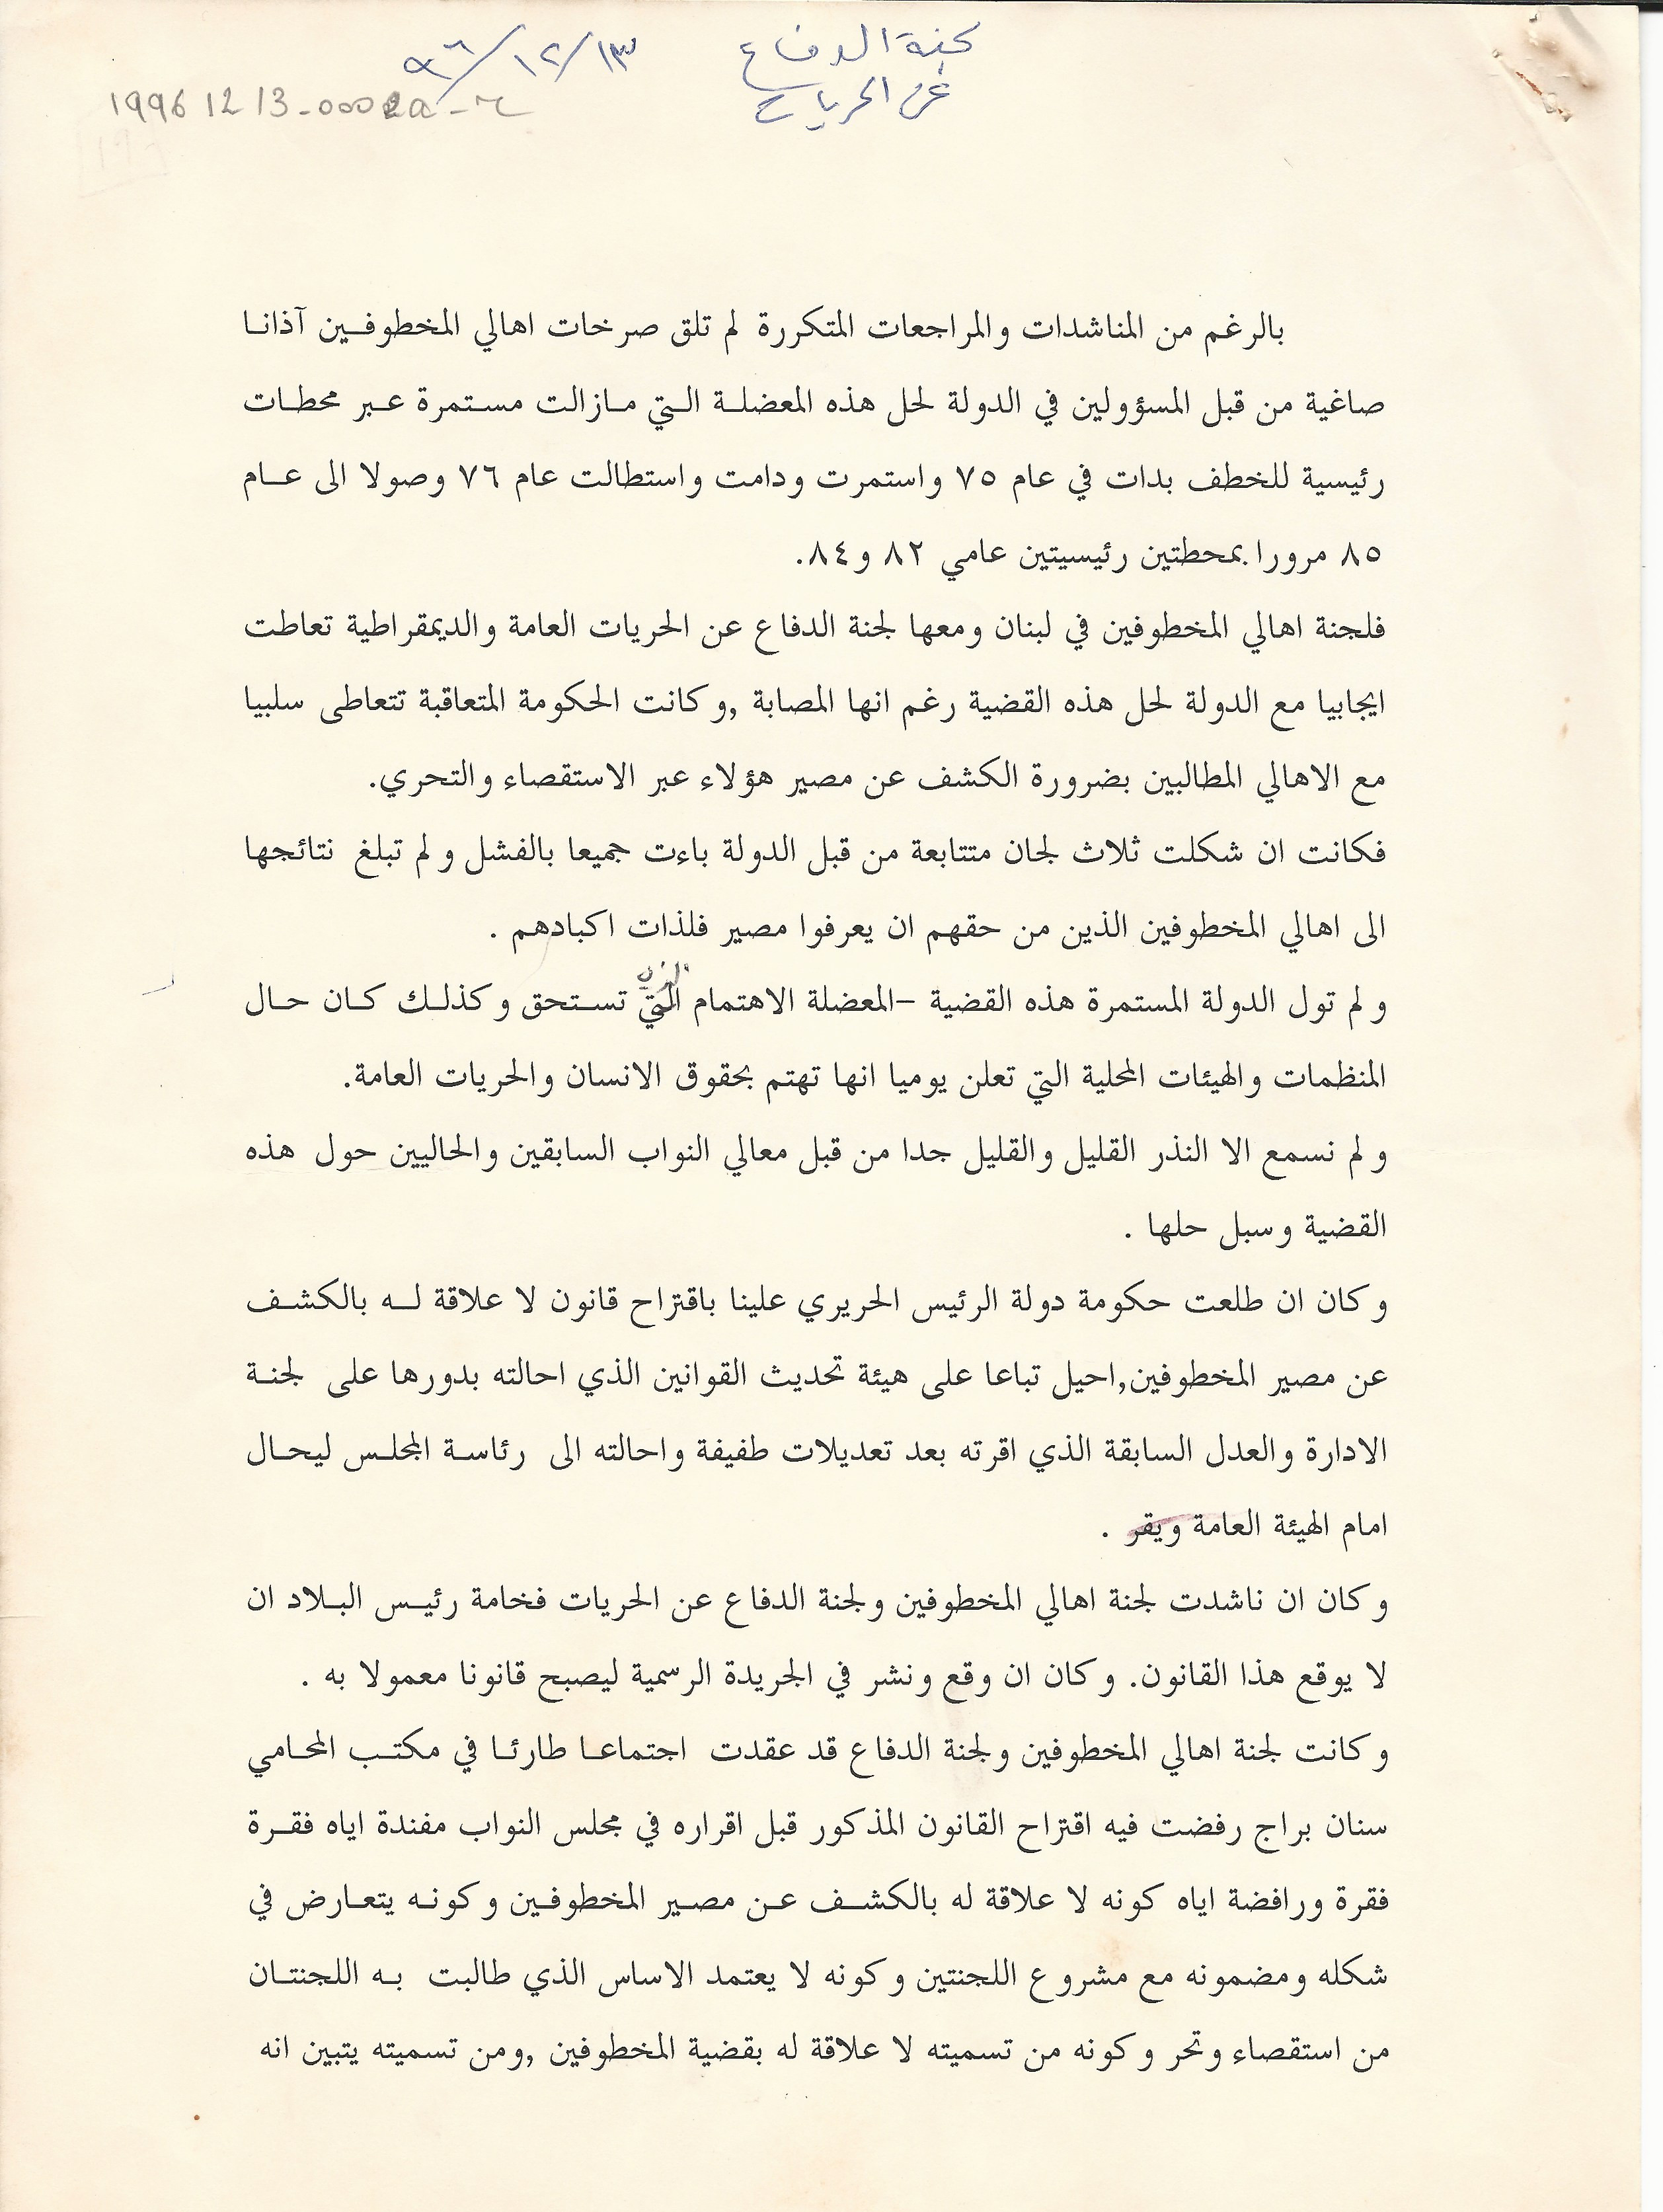 لجنة الدفاع ١٣/١٢/٩٦
عن الحريات
1996 12 13-0002a-
بالرغم من المناشدات والمراجعات المتكررة لم تلق صرخات اهالي المخطوفين آذانا
صاغية من قبل المسؤولين في الدولة لحل هذه المعضلة التي مازالت مستمرة عبر محطات
رئيسية للخطف بدات في عام ٧٥ واستمرت ودامت واستطالت عام ٧٦ وصولا الى عام
٨٥ مرورا بمحطتين رئيسيتين عامي ٨٢ و٨٤.
فلجنة اهالي المخطوفين في لبنان ومعها لجنة الدفاع عن الحريات العامة والديمقراطية تعاطت
ايجابيا مع الدولة لحل هذه القضية رغم انها المصابة ,وكانت الحكومة المتعاقبة تتعاطى سلبيا
مع الاهالي المطالبين بضرورة الكشف عن مصير هؤلاء عبر الاستقصاء والتحري.
فكانت ان شكلت ثلاث لجان متتابعة من قبل الدولة باءت جميعا بالفشل ولم تبلغ نتائجها
الى اهالي المخطوفين الذين من حقهم ان يعرفوا مصير فلذات اكبادهم .
ولم تول الدولة المستمرة هذه القضية –المعضلة الاهتمام التي تستحق وكذلك كان حال
المنظمات والهيئات المحلية التي تعلن يوميا انها تهتم بحقوق الانسان والحريات العامة.
ولم نسمع الا النذر القليل والقليل جدا من قبل معالي النواب السابقين والحاليين حول هذه
القضية وسبل حلها .
وكان ان طلعت حكومة دولة الرئيس الحريري علينا باقتراح قانون لا علاقة له بالكشف
عن مصير المخطوفين,احيل تباعا على هيئة تحديث القوانين الذي احالته بدورها على لجنة
الادارة والعدل السابقة الذي اقرته بعد تعديلات طفيفة واحالته الى رئاسة المجلس ليحال
امام الهيئة العامة ويقر .
وكان ان ناشدت لجنة اهالي المخطوفين ولجنة الدفاع عن الحريات فخامة رئيس البلاد ان
لا يوقع هذا القانون. وكان ان وقع ونشر في الجريدة الرسمية ليصبح قانونا معمولا به .
وكانت لجنة اهالي المخطوفين ولجنة الدفاع قد عقدت اجتماعا طارئا في مكتب المحامي
سنان براج رفضت فيه اقتراح القانون المذكور قبل اقراره في مجلس النواب مفندة اياه فقرة
فقرة ورافضة اياه كونه لا علاقة له بالكشف عن مصير المخطوفين وكونه يتعارض في
شكله ومضمونه مع مشروع اللجنتين وكونه لا يعتمد الاساس الذي طالبت به اللجنتان
من استقصاء وتحر وكونه من تسميته لا علاقة له بقضية المخطوفين ,ومن تسميته يتبين انه